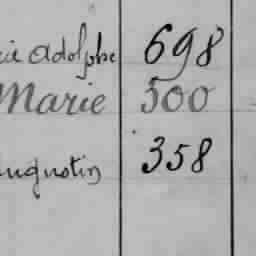 Adolphe 698
Marie 500
Augustin 358